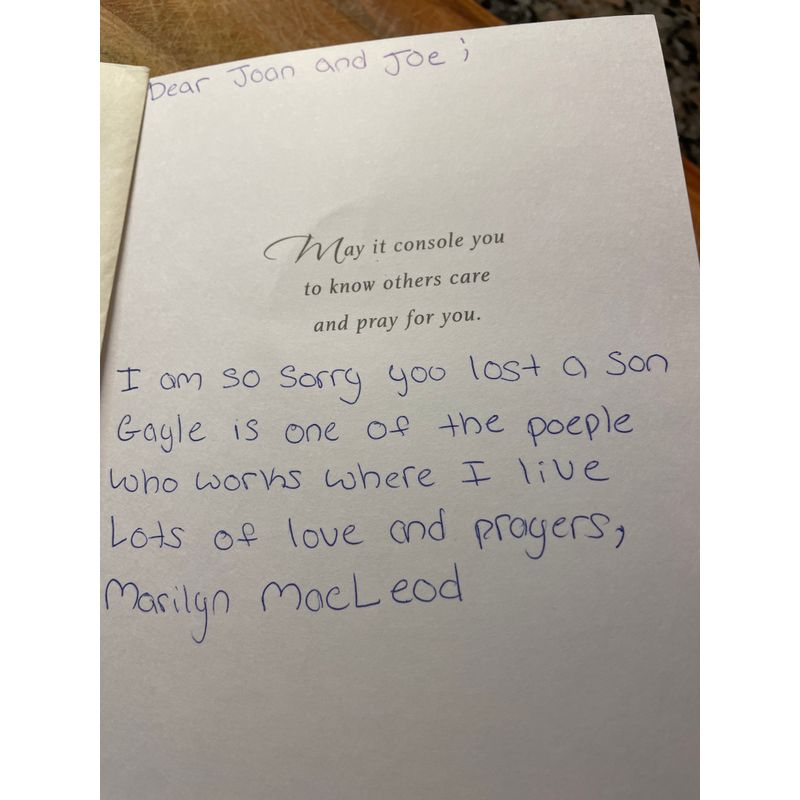 Dear Joan and Joe ;
May it console you
to know others care
and pray for you.
I am so sorry you lost a son
Gayle is one of the poeple
who works where I live
Lots of love and prayers,
Marilyn MacLeod